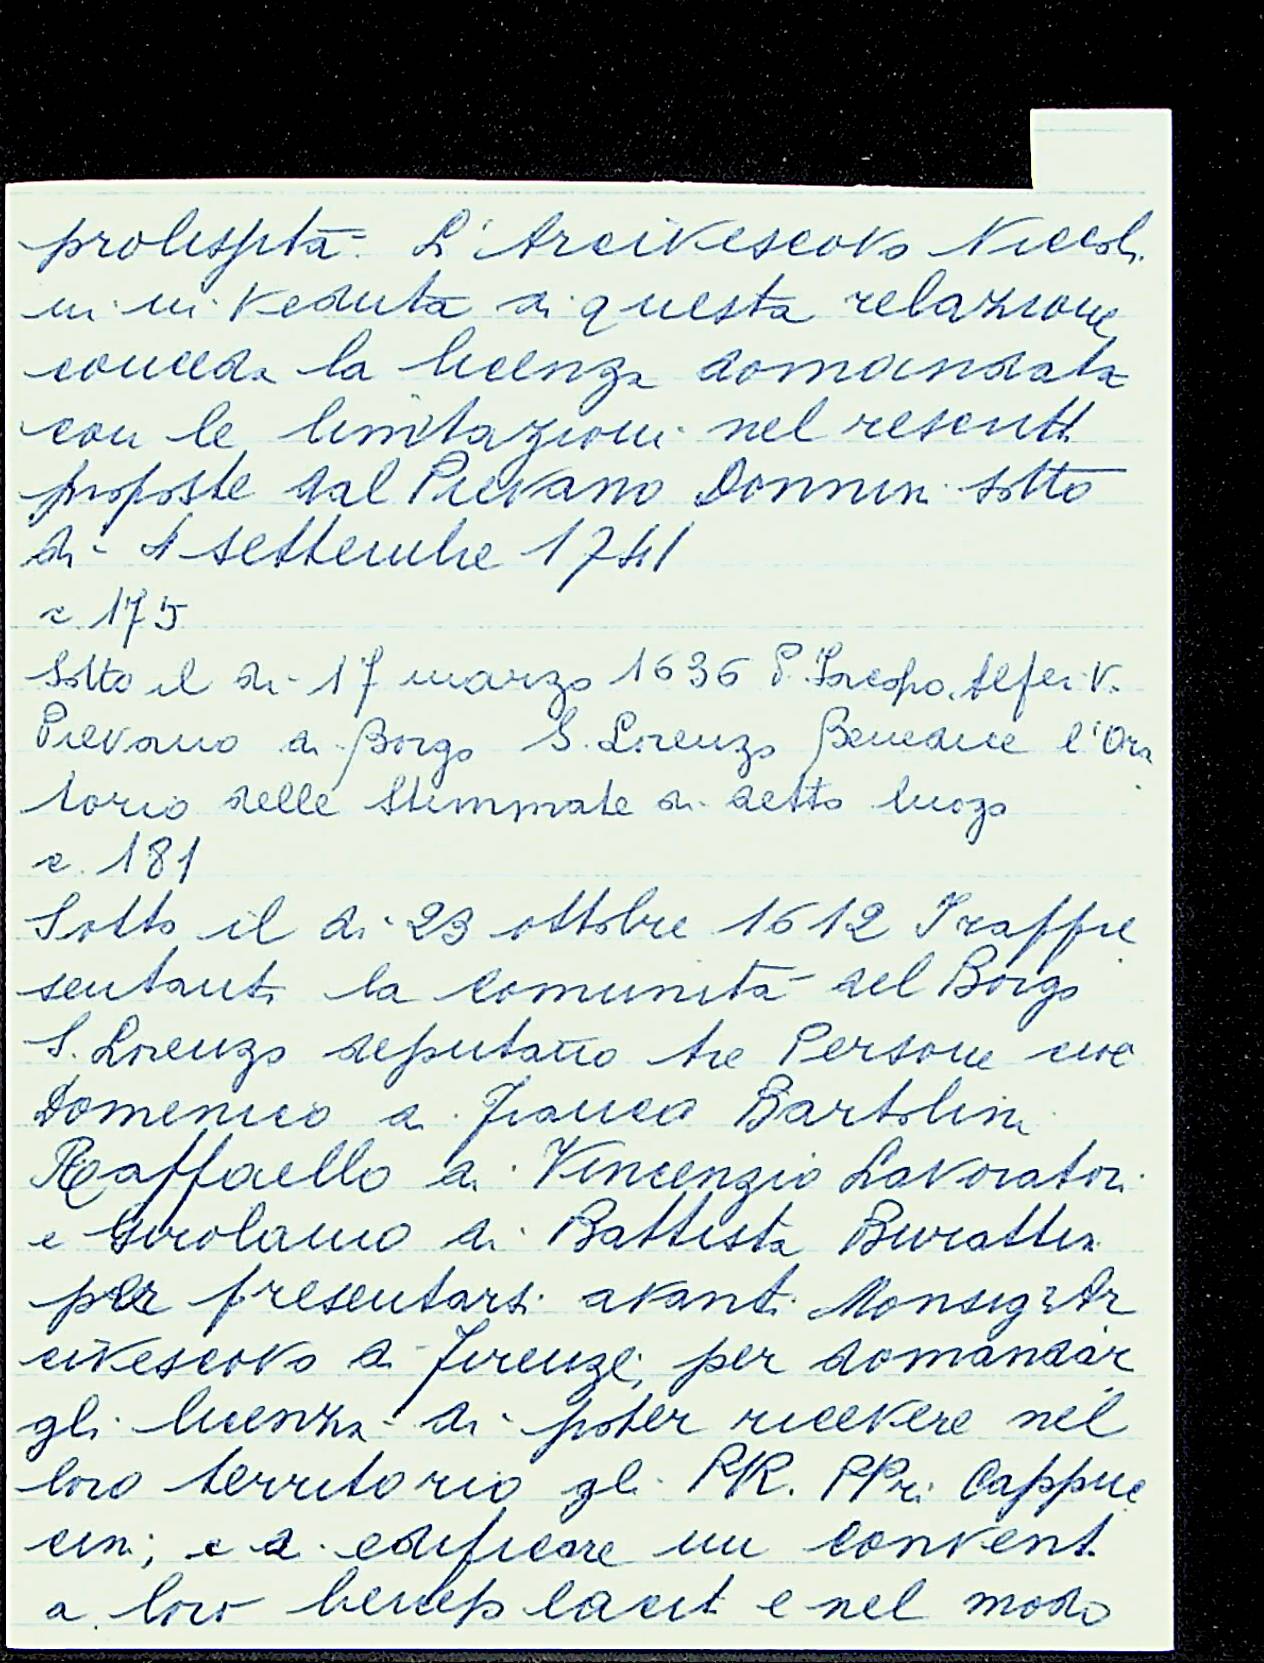 L'Arcivescovo Niccoli
ni in veduta di questa relazione
conceda la licenza domandata
con le limitazioni nel rescritt
proposte dal Pievano Donnini sotto
dì 4 settembre 1741
c. 175
Sotto il dì 17 marzo 1636 P. Jacopo Alfei V.
Pievano di Borgo S. Lorenzo Benedice l'Ora
torio delle Stimmate di detto luogo
c. 181
Sotto il dì 23 ottobre 1612 I rappre
sentanti la comunità del Borgo
S. Lorenzo deputano tre Persone cioè
Domenico di Franco Bartolini
Raffaello di Vincenzio Lavoratori
e Girolamo di Battista Burattin
per presentarsi avanti Monsig Ar
civescovo di Firenze, per domandar
gli licenza di poter ricevere nel
loro territorio gli RR. PPri Cappuc
cini; e di edificare un convent
a loro beneplacit e nel modo